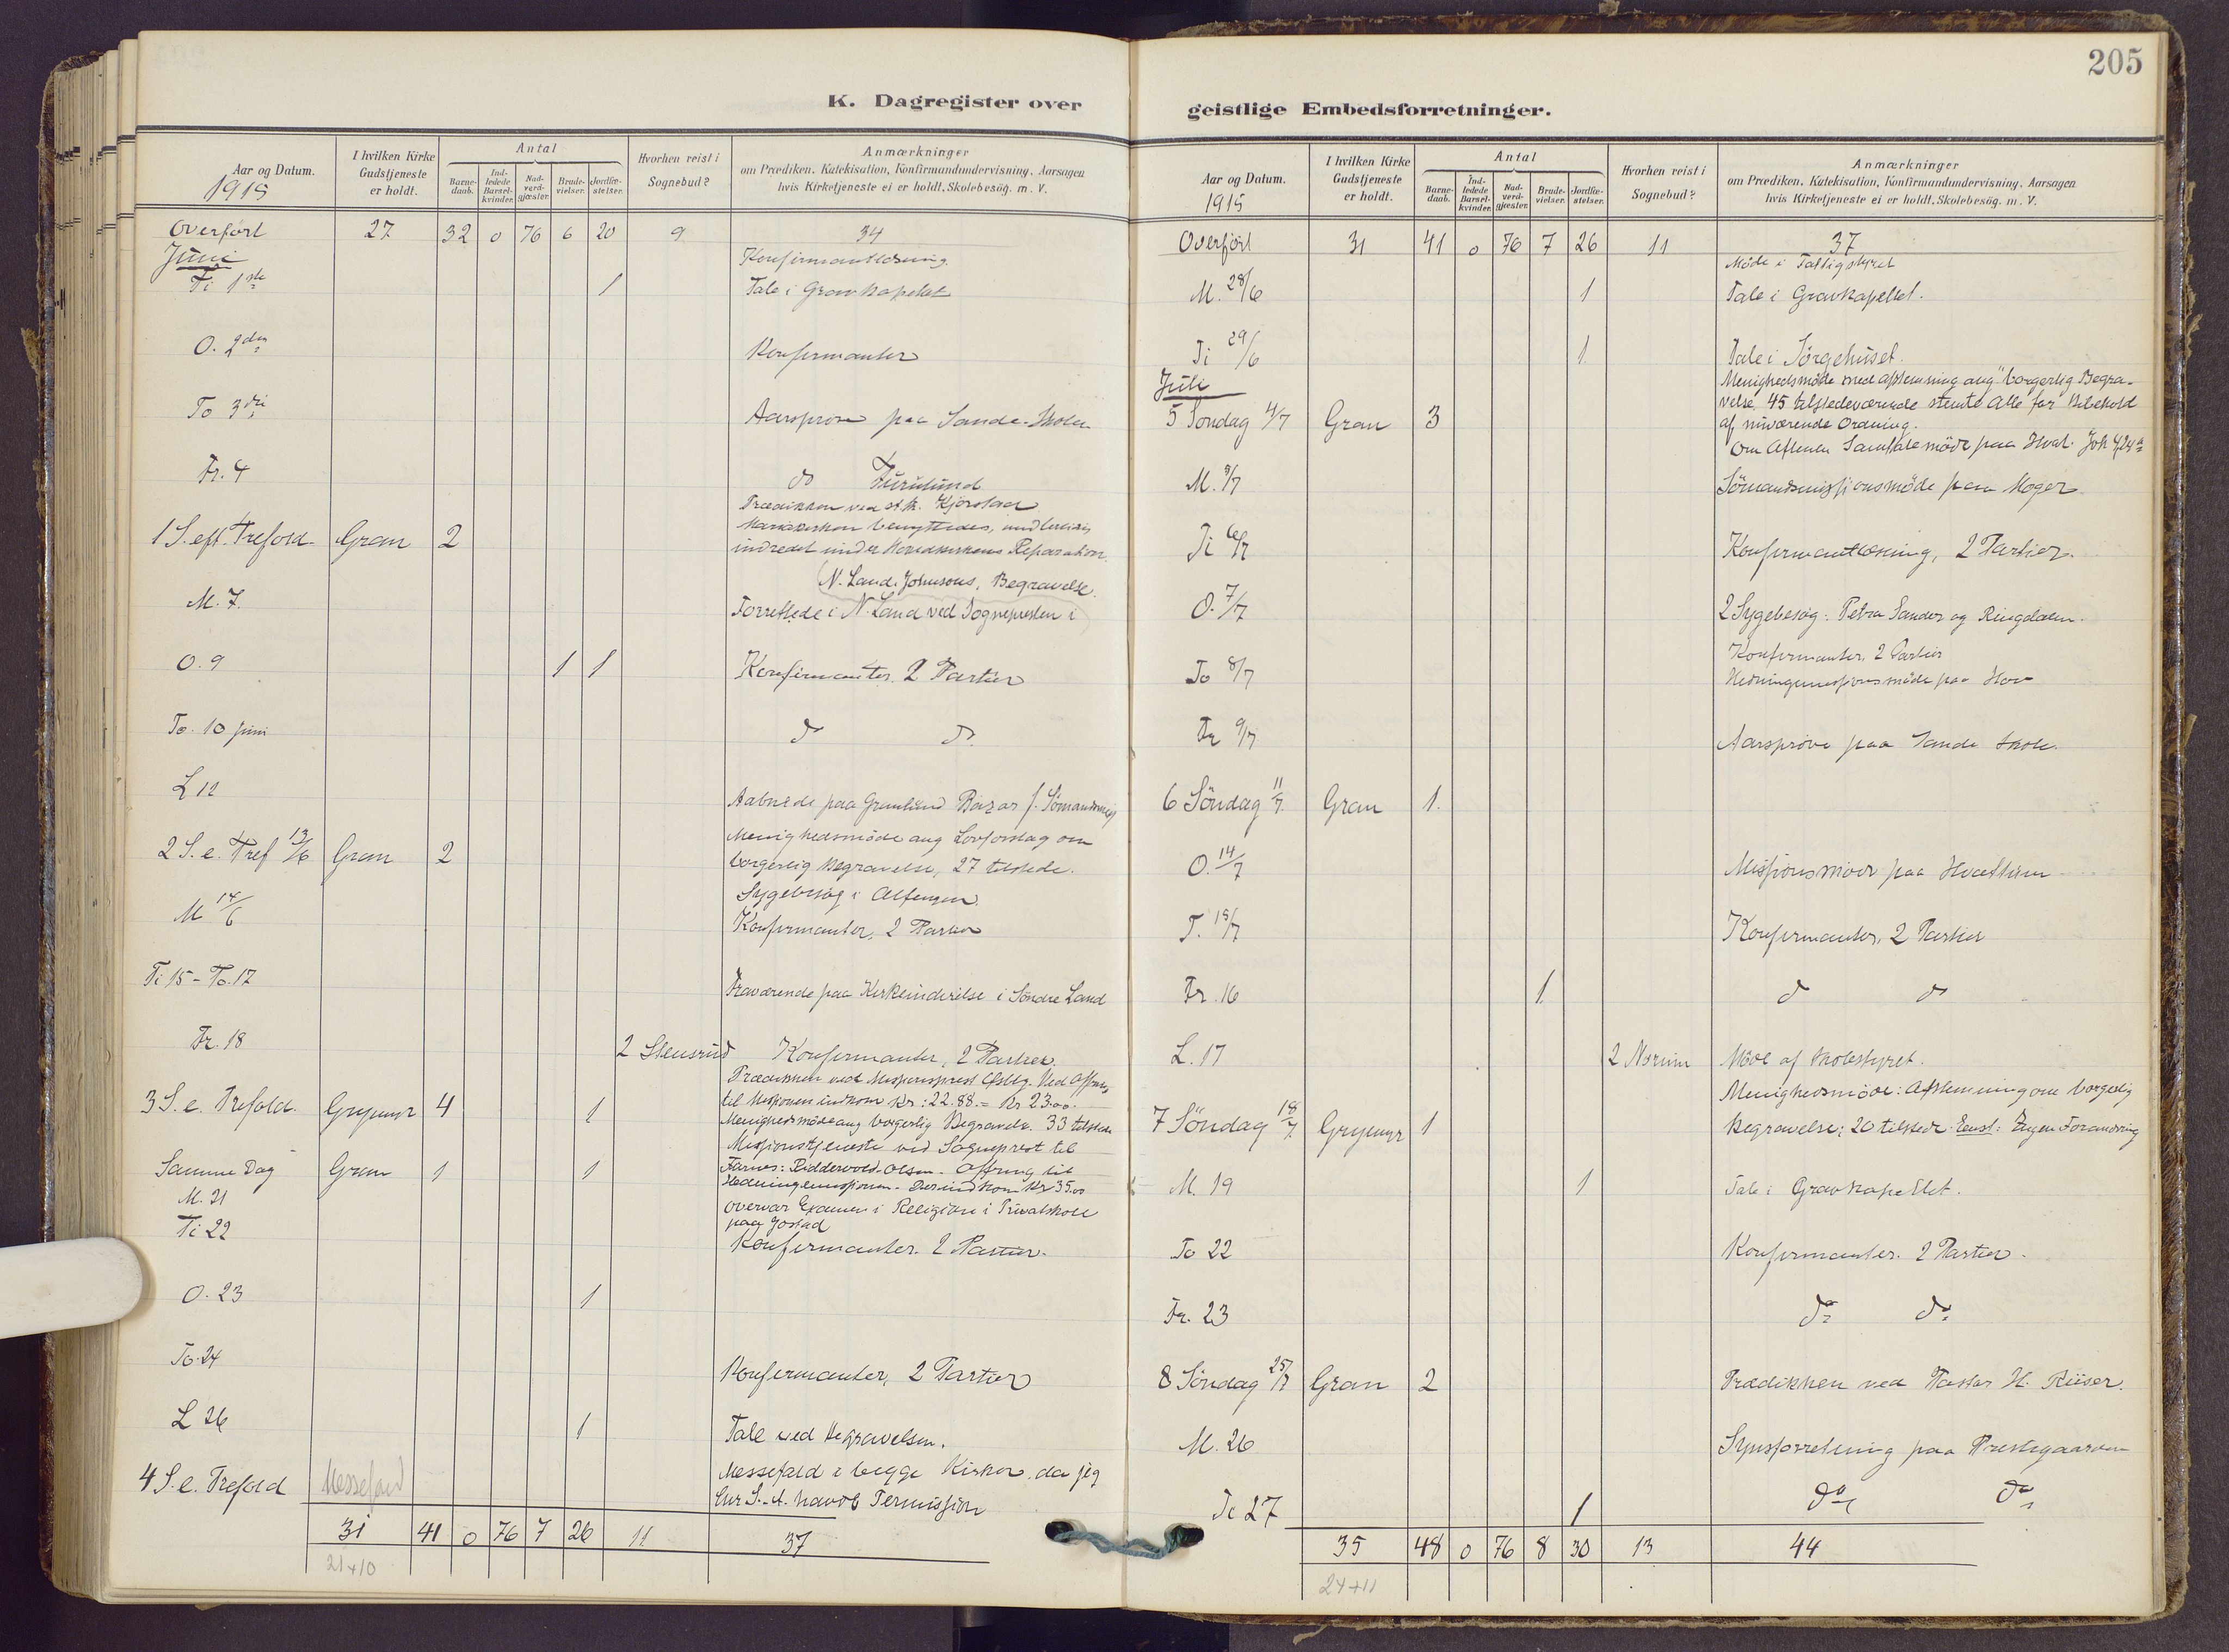 K. Dagregister over
Aar og Datum.
1915
I hvilken Kirke
Gudstjeneste
er holdt.
Antal
Barne-
daab.
Ind-
ledede
Barsel-
kvinder.
Nad-
verd-
gjæster.
Brude-
vielser.
Jordfæ-
stelser.
Hvorhen reist i
Sognebud?
Anmærkninger
om Prædiken. Katekisation, Konfirmandundervisning. Aarsagen
hvis Kirketjeneste ei er holdt, Skolebesög. m. V.
Overfört 27 32 0 76 6 20 9 34
Juni
Konfirmantlæsning.
Ti 1ste 1 Tale i Gravkapellet
O. 2den Konfirmanter
To 3die Aarsprøve paa Sande-Skolen
Fr. 4 do Furulund
Prædikken ved st. k. Kjørstad
benyttedes, midlertidig
1 S. eft. Trefold. Gran 2 indredet under Hovedkirkens Reparation.
N. Land. Johnsons. Begravelse.
M. 7. Forrettede i N. Land ved Sognepresten i
O. 9 1 1 Konfirmanter. 2 Partier
To. 10 juni do do.
L 12 Aabnede paa Granlund Bazar f. Sömandsmis
Menighedsmöde ang Lovforslag om
2 S. e. Tref 13/6 Gran 2 borgerlig Begravelse, 27 tilstede.
Sygebesög i Alfengen.
M 14/6 Konfirmanter, 2 Partier
Ti 15 - To. 17 Fraværende paa Kirkeindvielse i Söndre Land
Fr. 18 2 Stensrud Konfirmanter, 2 Partier.
Prædikken ved Missionsprest Ved Offring
til Missionen indkom Kr: 22.88. = Kr 23.00.
3 S. e. Trefold. Grymyr 4 1 Menighedsmöde ang borgerlig Begravelse. 33 tilstede
Missionstjeneste ved Sogneprest til
Samme Dag Gran 1 1 Farnes: Riddervold-Olsen. Offring til
Hedningemissionen. Der indkom Kr 35.00
M. 21 Overvar Examen i Religion i Privatskole
paa Jostad
Ti 22 Konfirmanter. 2 Partier.
O. 23 1
To. 24 Konfirmanter, 2 Partier
L 26 1 Tale ved Begravelsen.
4 S. e. Trefold Messefald Messefald i begge Kirker. da jeg
havde Permission
31 41 0 76 7 26 11 37
21+10
205
geistlige Embedsforretninger.
Aar og Datum.
1915
I hvilken Kirke
Gudstjeneste
er holdt.
Antal
Barne-
daab.
Ind-
ledede
Barsel-
kvinder.
Nad-
verd-
gjæster.
Brude-
vielser.
Jordfæ-
stelser.
Hvorhen reist i
Sognebud?
Anmærkninger
om Prædiken. Katekisation, Konfirmandundervisning. Aarsagen
hvis Kirketjeneste ei er holdt, Skolebesög. m. V.
Overfört 31 41 0 76 7 26 11 37
Möde i Fattigstyret
M. 28/6 1 Tale i Gravkapellet.
Ti 29/6 1 Tale i Sörgehuset.
Juli
Menighedsmöde med afstemning ang. "borgerlig Begra-
velse. 45 tilstedeværende stemte Alle for Bibehold
5 Söndag 4/7 Gran 3 af nuværende Ordning.
Om Aftenen Samtalemöde paa Hval. Joh 4,24
M. 5/7 Sömandsmissionsmöde paa Moger
Ti 6/7 Konfirmantlæsning, 2 Partier.
O. 7/7 2 Sygebesög: Petra Sander og Ringdalen.
Konfirmanter, 2 Partier
To 8/7 Hedningemissionsmöde paa Hov
Fr 9/7 Aarsprøve paa Sande Skole.
6 Söndag 11/7 Gran 1.
O. 14/7 Missionsmöde paa Hvattum
T. 15/7 Konfirmanter, 2 Partier
Fr. 16 1 do do
L. 17 2 Norum Möde af Skolestyret.
Menighedsmöde: Afstemning om borgerlig
7 Söndag 18/7 Grymyr 1 Begravelse; 20 tilstede. Enst: Ingen Forandring
M. 19 1 Tale i Gravkapellet.
To 22 Konfirmanter. 2 Partier.
Fr. 23 do do
8 Söndag 25/7 Gran 2 Prædikken ved Pastor H. Riiser.
M. 26 Synsforretning paa Prestegaarden
Ti 27 1 do do
35 48 0 76 8 30 13 44
24+11